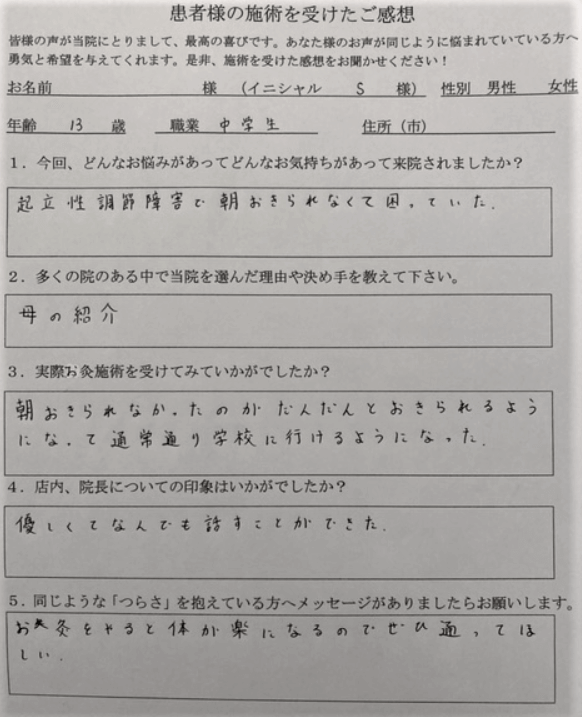 患者様の施術を受けたご感想
皆様の声が当院にとりまして、最高の喜びです。あなた様のお声が同じように悩まれていている方へ
勇気と希望を与えてくれます。是非、施術を受けた感想をお聞かせください！
お名前 様 (イニシャル S 様) 性別 男性 女性
年齢 13 歳 職業 中学生 住所（市）
1．今回、どんなお悩みがあってどんなお気持ちがあって来院されましたか？
起立性調節障害で朝おきられなくて困っていた.
2．多くの院のある中で当院を選んだ理由や決め手を教えて下さい。
母の紹介
3．実際お灸施術を受けてみていかがでしたか？
朝おきられなかったのがだんだんとおきられるよう
になって通常通り学校に行けるようになった.
4．店内、院長についての印象はいかがでしたか？
優しくてなんでも話すことができた.
5．同じような「つらさ」を抱えている方へメッセージがありましたらお願いします。
お灸をやると体が楽になるのでぜひ通ってほ
しい.